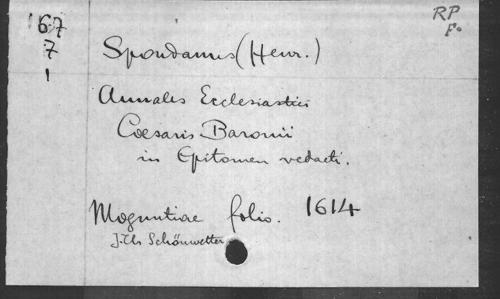 167
7
1
RP
Fo
Spondanus (Henr.)
Annales Ecclesiastici
Caesaris Baronii
in Epitomen redacti.
Moguntiae folio. 1614
J. Th Schönwetter